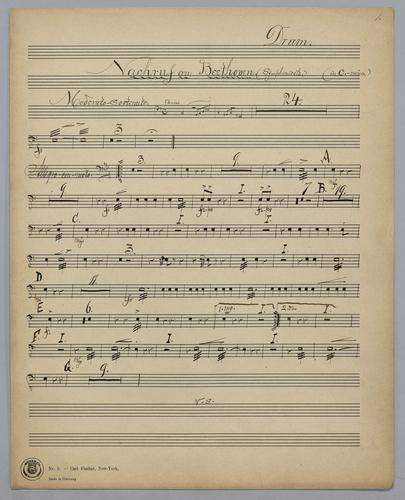 Drum.
Nachruf an Beethoven (in C-minor)
Moderato-Sostenuto. 24.
3.
Allegro-con-moto. 3. 9. A.
9. I. 7. B. 19.
C. I. I.
3. I.
D. 11.
E. 6. I. I.
F. I. I. I.
G. 9.
V.S.
Nr. 5. — Carl Fischer, New-York.
Made in Germany